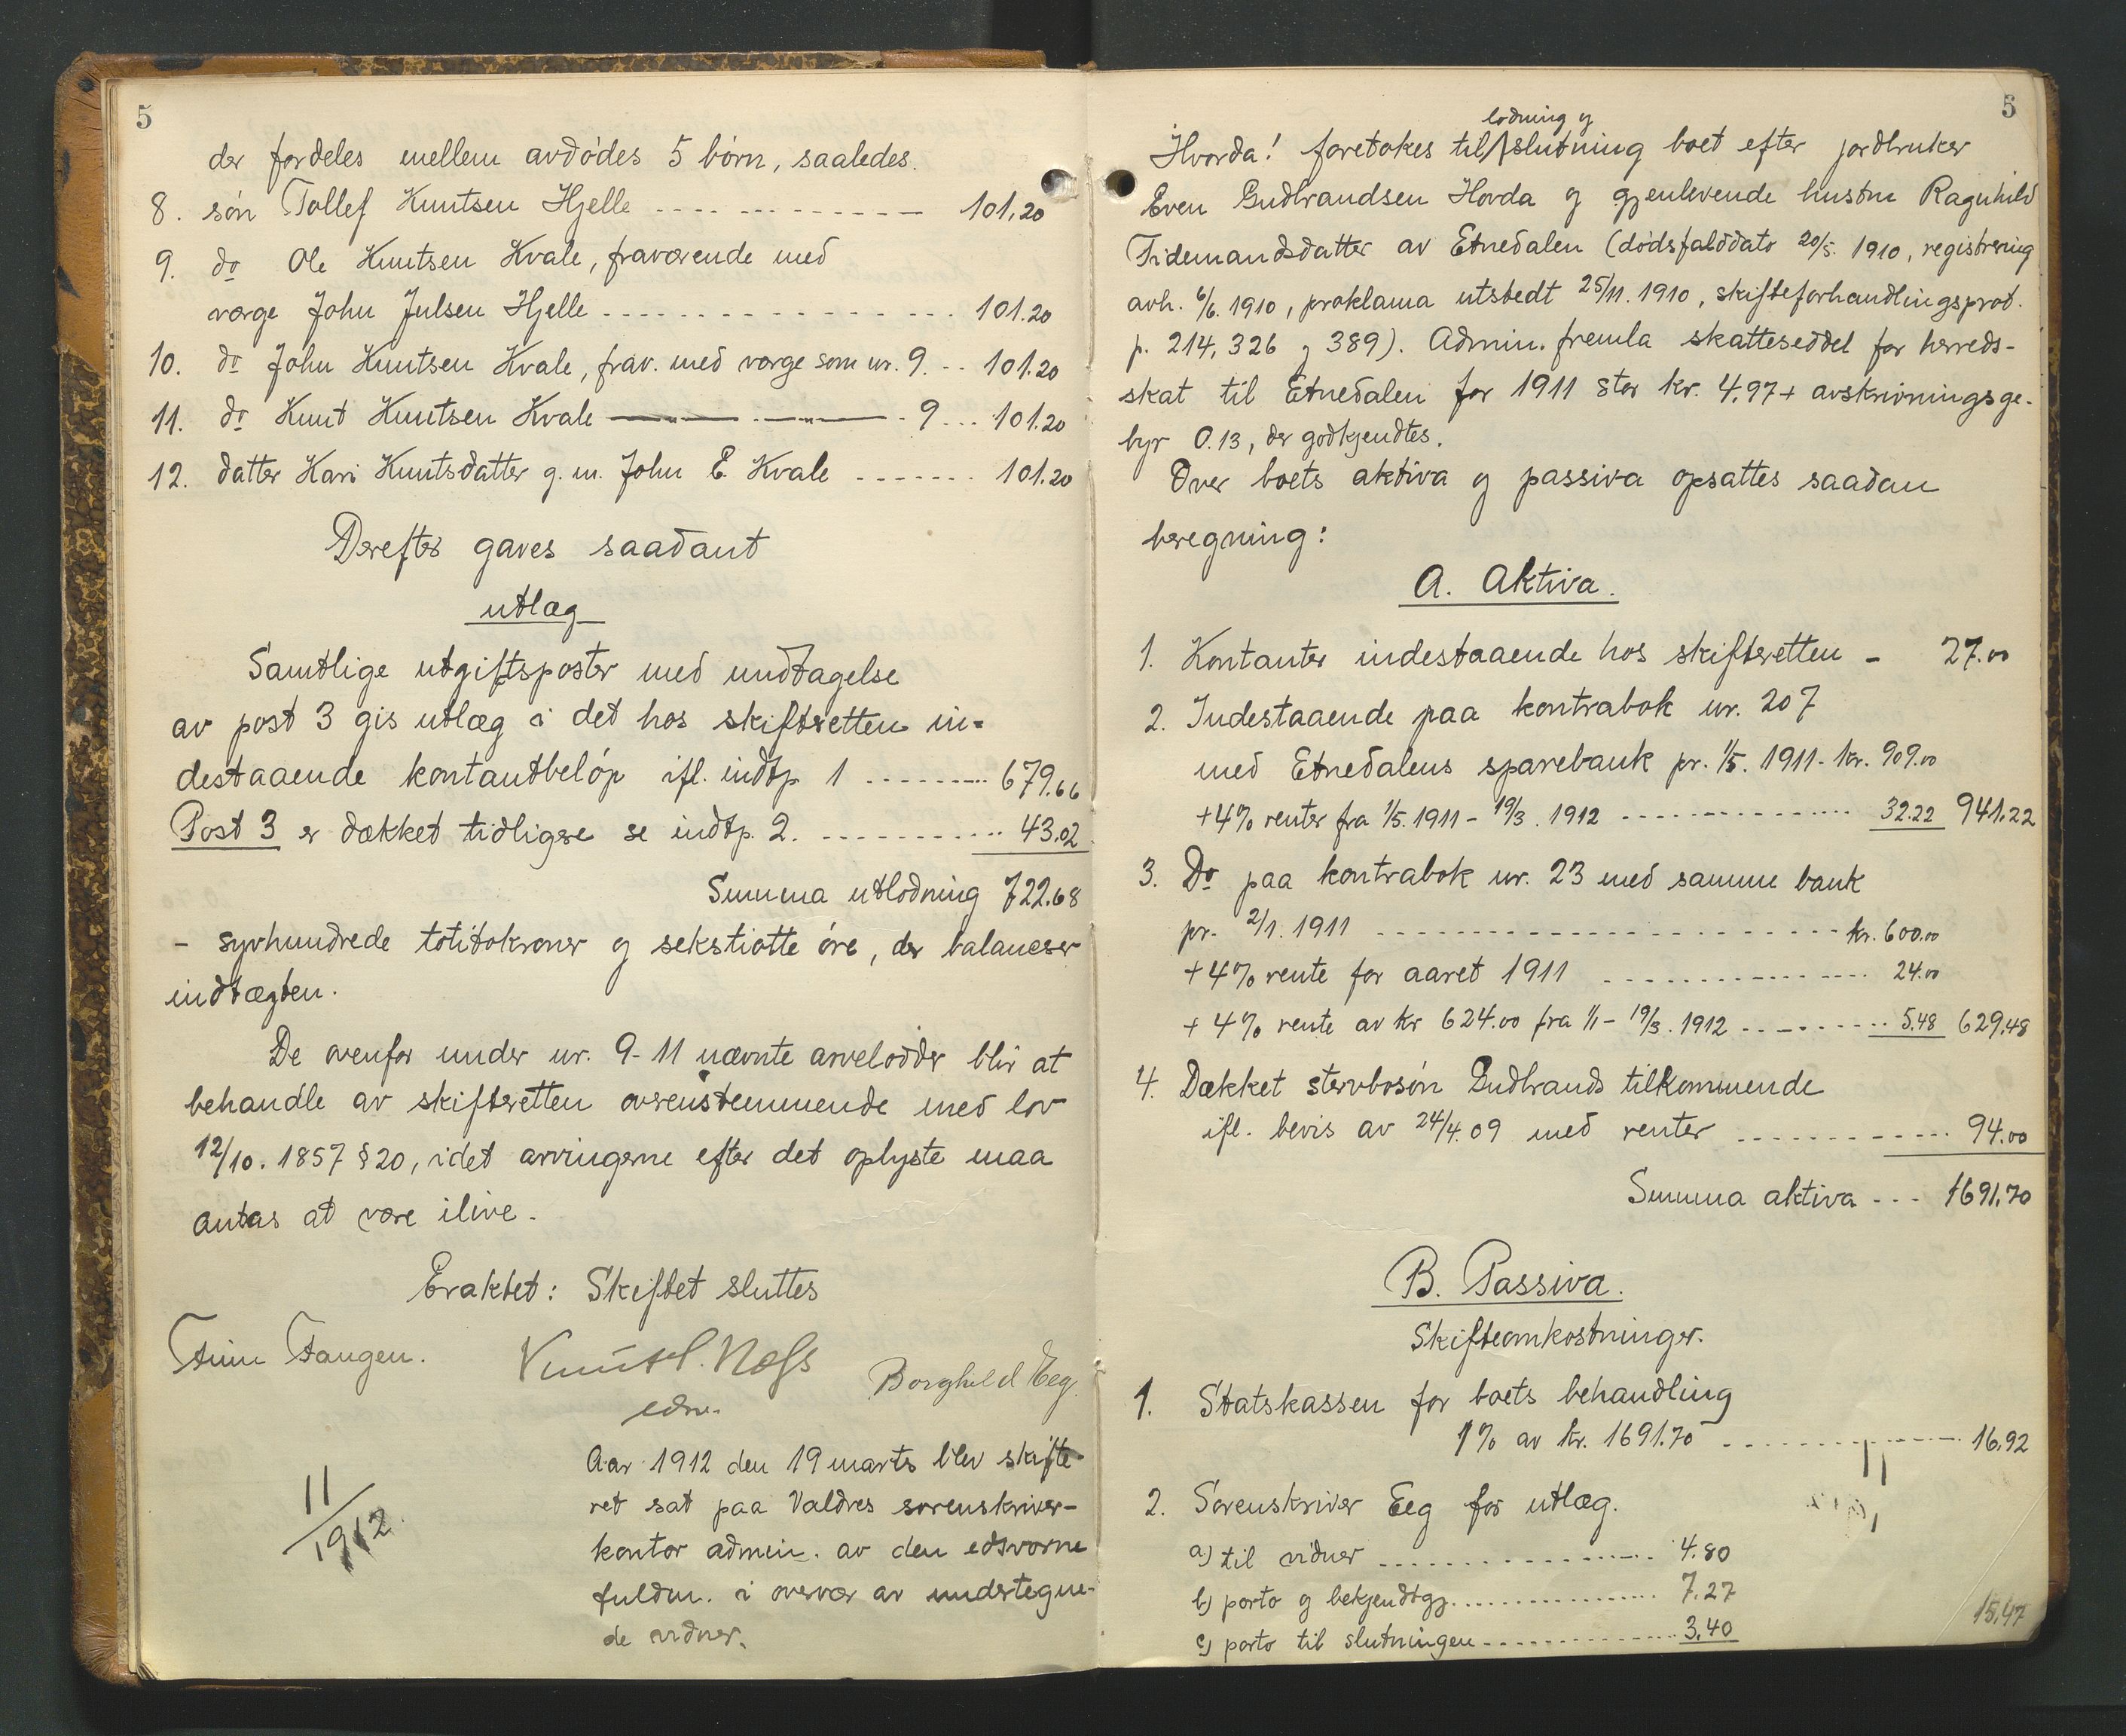 5
der fordeles mellem avdødes 5 børn, saaledes.
8. søn Tollef Knutsen Hjelle ---------- 101,20
9. do Ole Knutsen Kvale, fraværende med
værge John Julsen Hjelle ---------- 101.20
10. do John Knutsen Kvale, frav. med værge som nr. 9. -- 101.20
11. do Knut Knutsen Kvale —„— —„— - 9 --- 101.20
12. datter Kari Knutsdatter g. m. John E. Kvale ------- 101.20
Derefter gaves saadant
utlæg
Samtlige utgiftsposter med undtagelse
av post 3 gis utlæg i det hos skifteretten in=
destaaende kontantbeløp ifl. indtp. 1 --------- 679.66
Post 3 er dækket tidligere se indtp. 2. ---------- 43.02
Summa utlodning 722.68
- syvhundrede totitokroner og sekstiotte øre, der balancerer
indtægten.
De ovenfor under nr. 9-11 nævnte arvelodder blir at
behandle av skifteretten overenstemmende med lov
12/10. 1857 § 20, idet arvingerne efter det oplyste maa
antas at være ilive.
Eraktet: Skiftet sluttes
Finn Tangen. Knut O. Næss Borghild Eeg.
edsv.
11/1912
Aar 1912 den 19 marts blev skifte-
ret sat paa Valdres sorenskriver-
kontor admin. av den edsvorne
fuldm. i overvær av undertegne-
de vidner.
5
Hvorda! foretokes til lodning og slutning boet efter jordbruker
Even Gudbrandsen Hovda og gjenlevende hustru Ragnhild
Tidemandsdatter av Etnedalen (dødsfalddato 20/5. 1910, registrering
avh. 6/6. 1910, proklama utstedt 25/11. 1910, skifteforhandlingsprot.
p. 214, 326 og 389). Admin. fremla skatteseddel for herreds-
skat til Etnedalen for 1911 stor kr. 4.97 + avskrivningsge-
byr 0.13, der godkjendtes.
Over boets aktiva og passiva opsattes saadan
beregning:
A. Aktiva.
1. Kontanter indestaaende hos skifteretten - 27.00
2. Indestaaende paa kontrabok nr. 207
med Etnedalens sparebank pr. 1/5. 1911 - kr. 909.00
+ 4% renter fra 1/5. 1911 - 19/3. 1912 ---------- 32.22 941.22
3. Do paa kontrabok nr. 23 med samme bank
pr. 2/1. 1911 ---------- kr. 600.00
+ 4% rente for aaret 1911 ---------- 24.00
+ 4% rente av kr 624.00 fra 1/1 - 19/3. 1912 ---------- 5.48 629.48
4. Dækket stervbosøn Gudbrands tilkommende
ifl. bevis av 24/4. 09 med renter ---------- 94.00
Summa aktiva --- 1691.70
B. Passiva.
Skifteomkostninger.
1. Statskassen for boets behandling
1% av kr. 1691.70 ---------- 16.92
2. Sorenskriver Eeg for utlæg.
a) til vidner ---------- 4.80
b) porto og bekjendtgj. ---------- 7.27
c) porto til slutningen ---------- 3.40 15.47